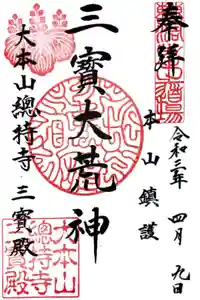 奉拝
本山鎮護
令和三年 四月 九日
三寳大荒神
大本山總持寺 三寳殿
大本山
總持寺
三寳殿